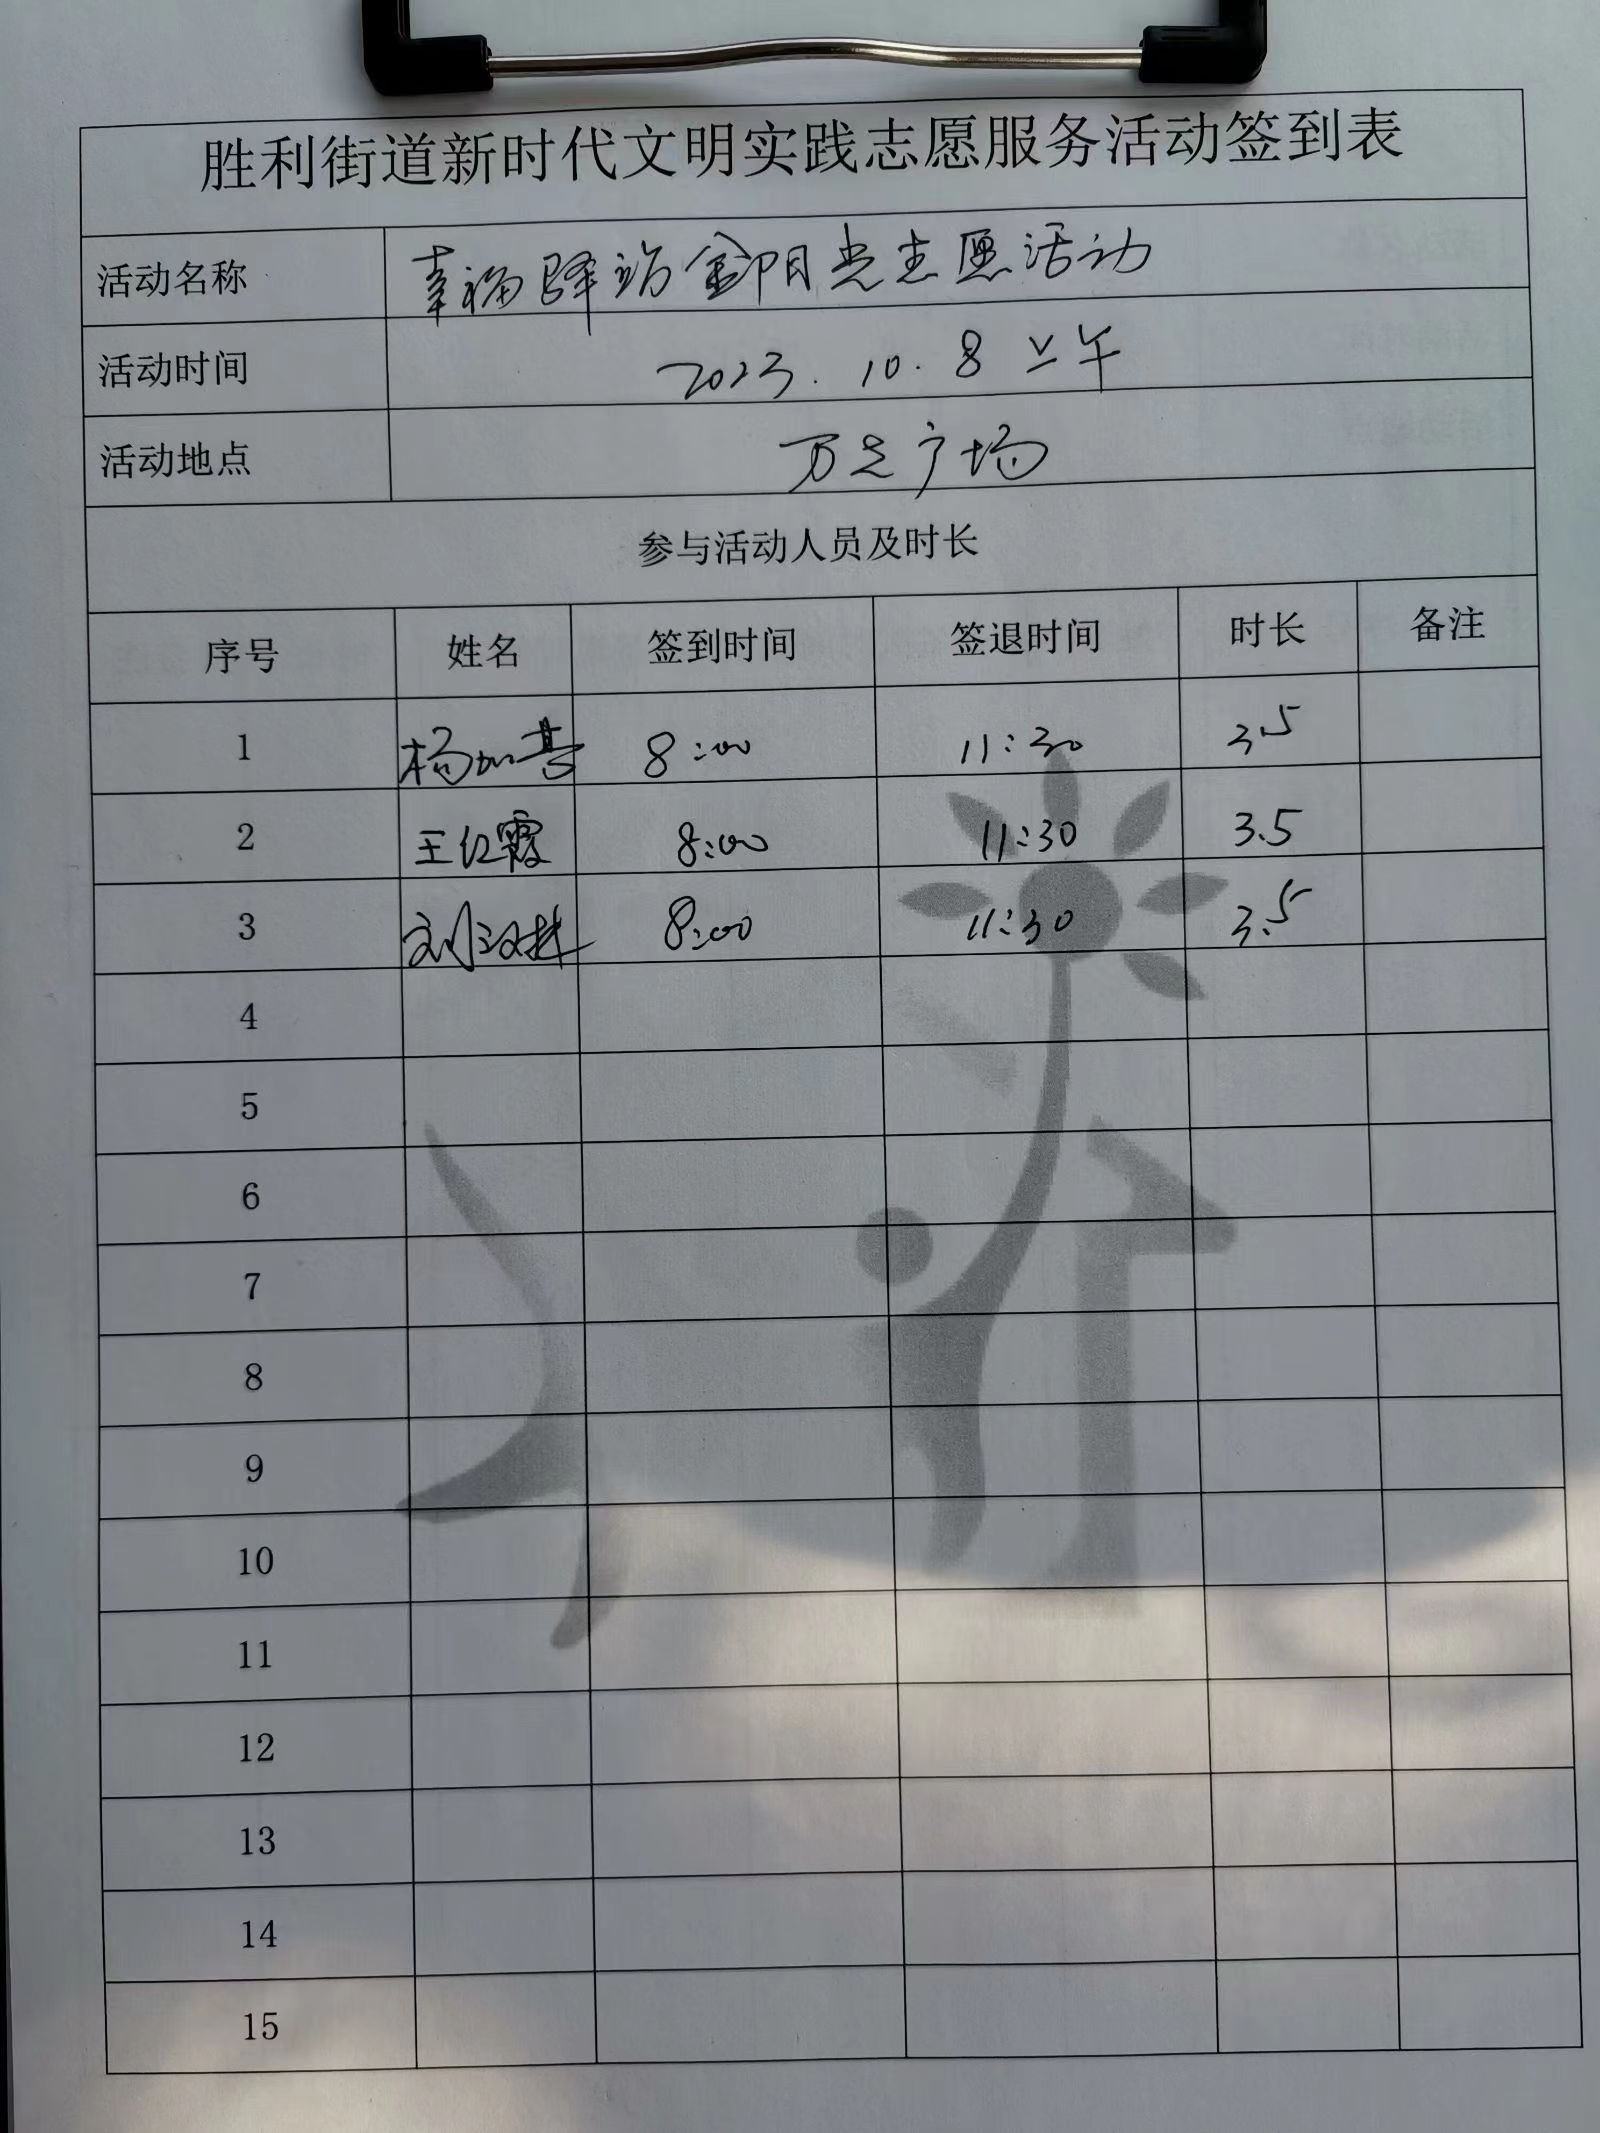 胜利街道新时代文明实践志愿服务活动签到表
活动名称 幸福驿站金阳光志愿活动
活动时间 2023.10.8 上午
活动地点 万达广场
参与活动人员及时长
序号 姓名 签到时间 签退时间 时长 备注
1 杨 8:00 11:30 3.5
2 王红霞 8:00 11:30 3.5
3 刘汉 8:00 11:30 3.5
4
5
6
7
8
9
10
11
12
13
14
15